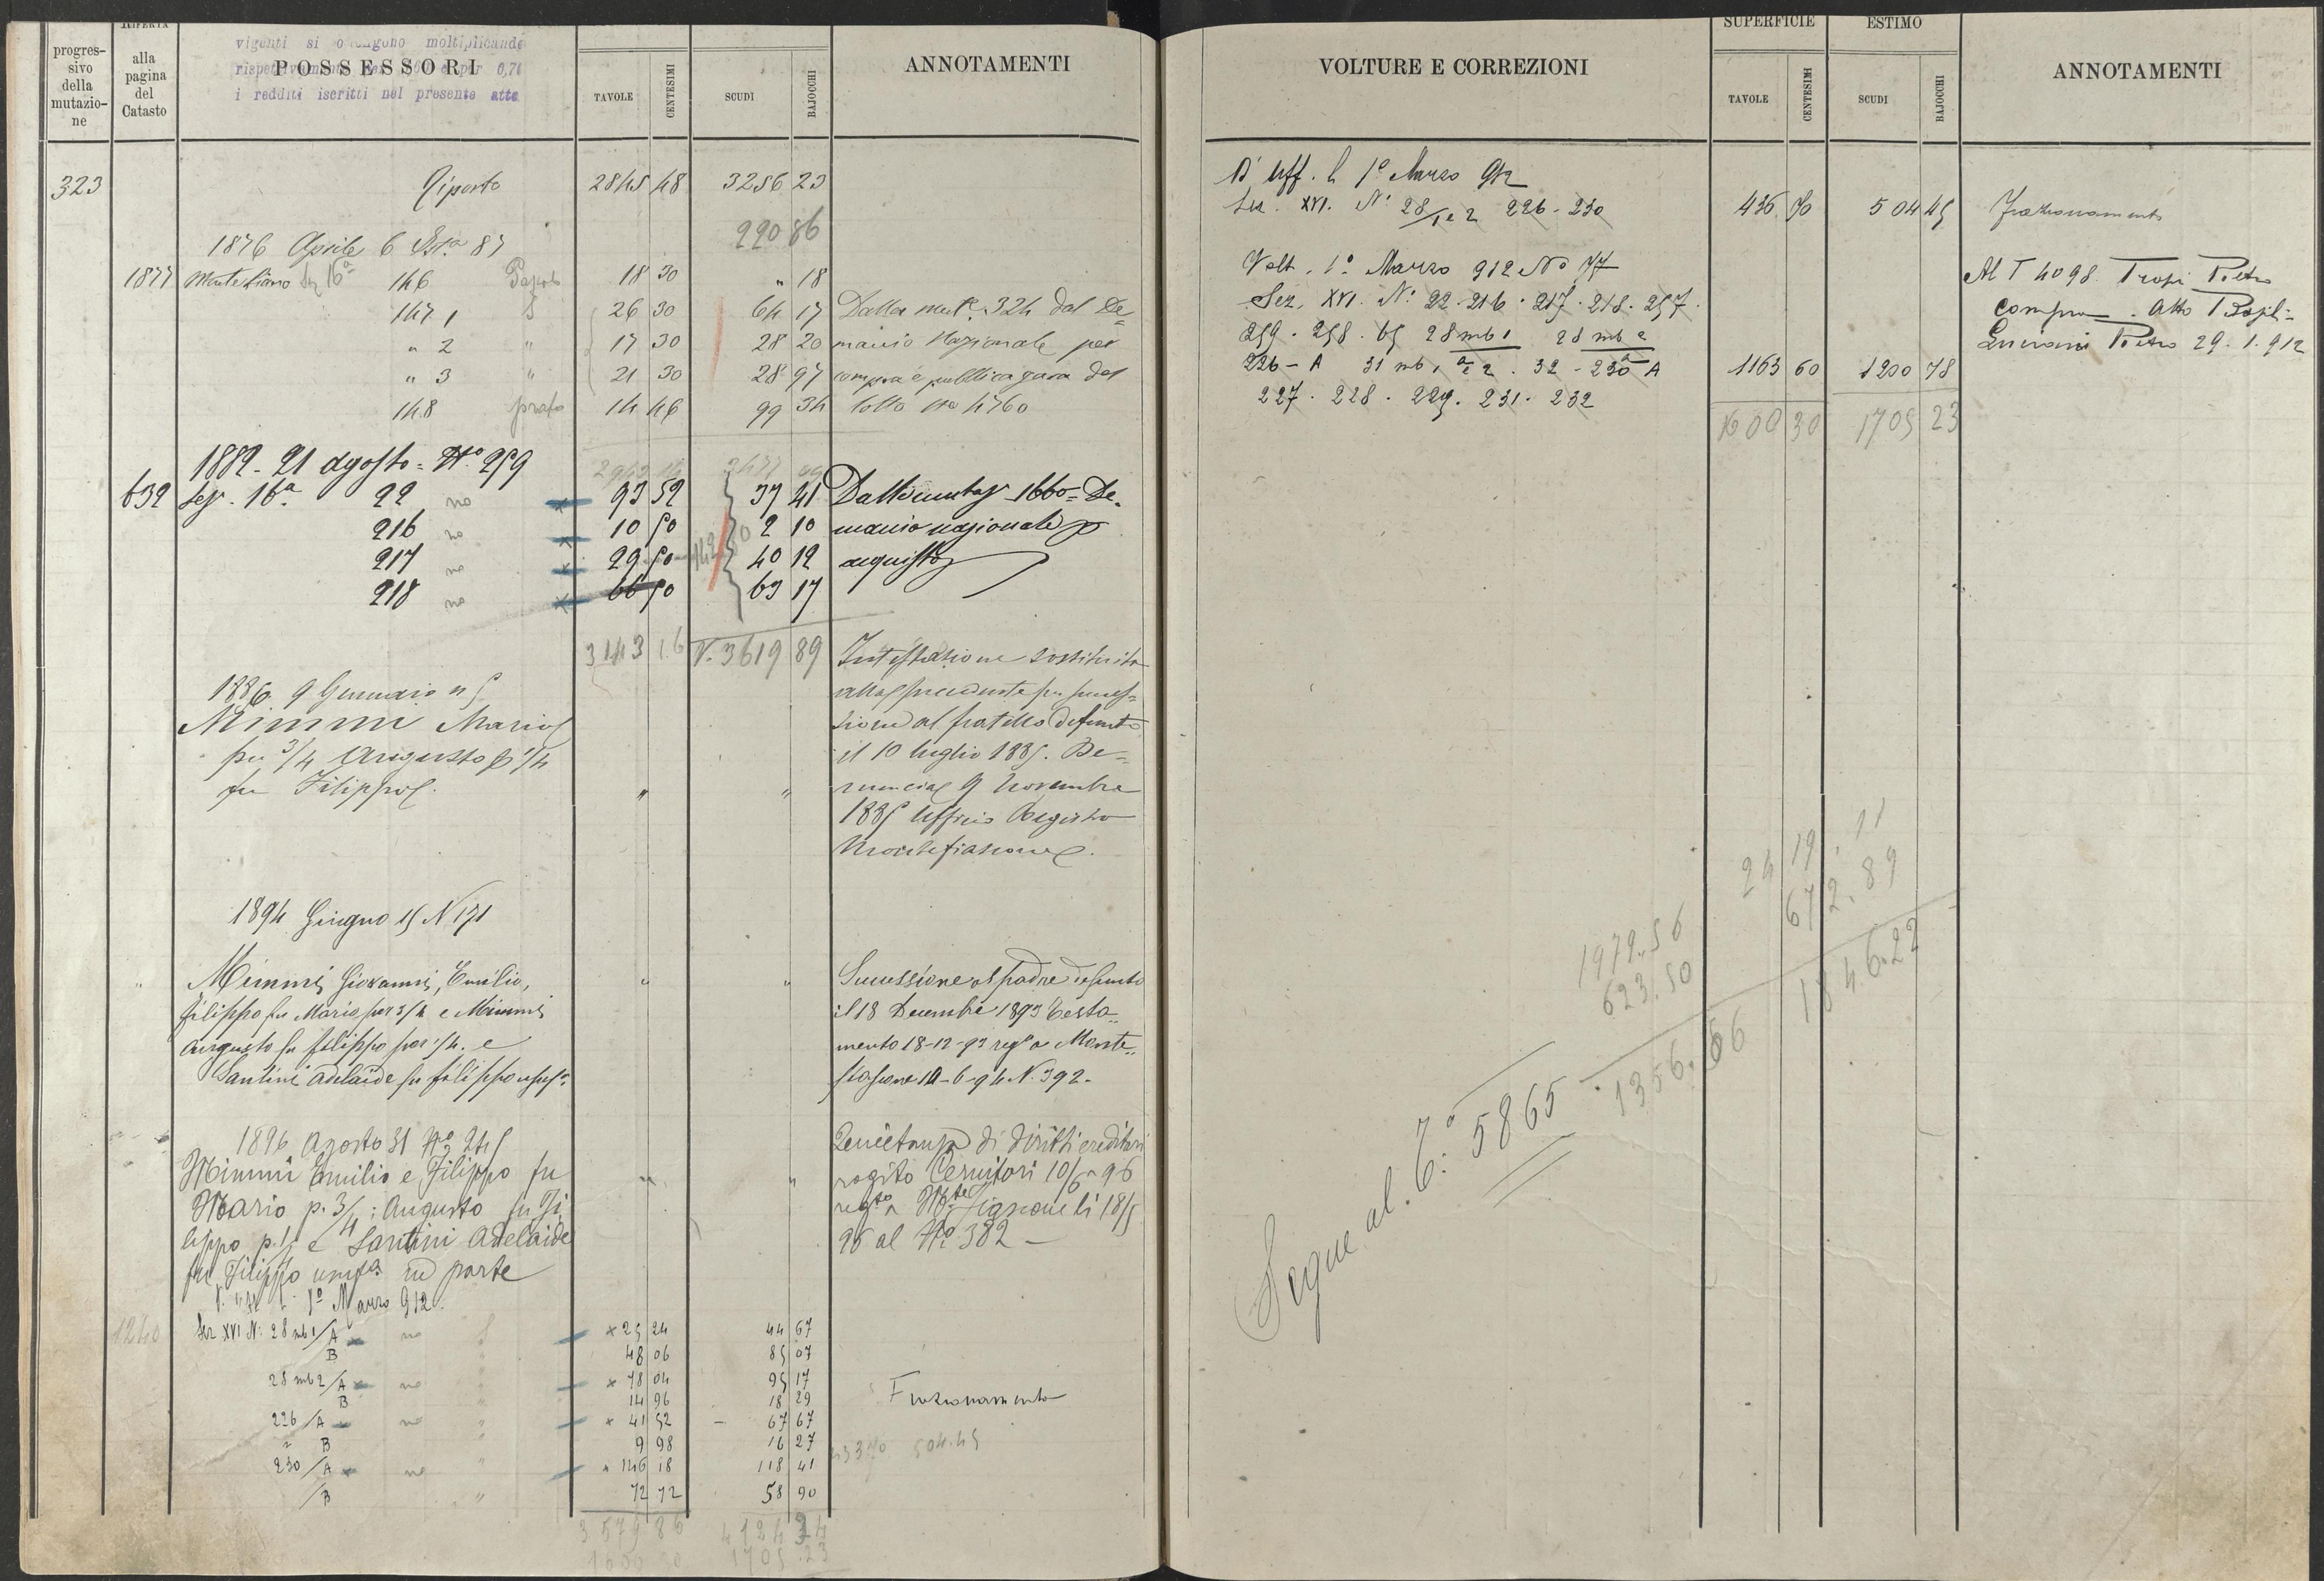 progres-
sivo
della
mutazio-
ne
RIFERTA
alla
pagina
del
Catasto
vigenti si ottengono moltiplicando
POSSESSORI
i redditi iscritti nel presente atto
TAVOLE CENTESIMI SCUDI BAJOCCHI
ANNOTAMENTI
323 Riporto 2845 48 3256 23
220 86
1876 Aprile 6 87
1877 Montefiasc Sez 16a 146 18 30 " 18
147 1 26 30 64 17 Dalla mut.e 324 dal De=
" 2 " 17 30 28 20 manio Nazionale per
" 3 " 21 30 28 97 compra e pubblica gara del
148 prato 14 46 99 34 lotto No 4760
1882 - 21 agosto = No 259
632 sez. 16a 22 no 93 52 37 41 Dalla mutaz 1660 = De.
216 no 10 50 2 10 manio nazionale p
217 no 29 50 40 12 acquisto
218 no 66 50 63 17
3143 16 V. 3619 89 Intestazione sostituita
1886. 9 Gennaio n 5 alla precedente per succes=
Mimmi Mario sione al fratello defunto
per 3/4 Augusto p 1/4 il 10 luglio 1885. De=
fu Filippo. " " nuncia 9 Novembre
1885 Ufficio Registro
Montefiascone.
1894 Giugno 15 N 171
" Mimmi Giovanni, Emilio, " " Successione al padre defunto
Filippo fu Mario per 3/4 e Mimmi il 18 Decembre 1893 Testa=
Augusto fu Filippo per 1/4. e mento 18-12-93 reg° a Monte=
Santini Adelaide fu Filippo usufa fiascone 10-6-94 N. 392.
1896 Agosto 31 No 245
Mimmi Emilio e Filippo fu " " rogito Cernitori 10/6 96
Mario p. 3/4: Augusto fu Fi
lippo p. 1/4 e Santini Adelaide 96 al No 382 —
fu Filippo usufa in parte
1° Marzo 912.
1240 Sez XVI N: 28 sub 1/A no × 25 24 44 67
B " 48 06 85 07
28 sub 2/A no " × 78 04 95 17
B " 14 96 18 29 Frazionamento
226/A no " × 41 52 67 67
" B " 9 98 16 27
504.45
230/A no " × 146 18 118 41
/B " 72 72 58 90
3579 86 4124 34
1600 30 1705.23
VOLTURE E CORREZIONI
SUPERFICIE ESTIMO
TAVOLE CENTESIMI SCUDI BAJOCCHI
ANNOTAMENTI
D' Uff. li 1° Marzo 912
Sez. XVI. N: 28/1 e 2 226 - 230 436 70 504 45 Frazionamento
Volt. 1° Marzo 912 No 77 Al T 4098 Tropi Pietro
Sez. XVI. N: 22. 216. 217. 218. 257. compra. Atto
259. 258. 65 28 sub 1 28 sub 2 Luciani Pietro 29.1.912
226 - A 31 sub 1 e 2. 32 - 230 A 1163 60 1200 78
227. 228. 229. 231. 232
1600 30 1705 23
24 19. 11
672.89
1846.22
1979.56
623.50
1356.06
Segue al. 6: 5865